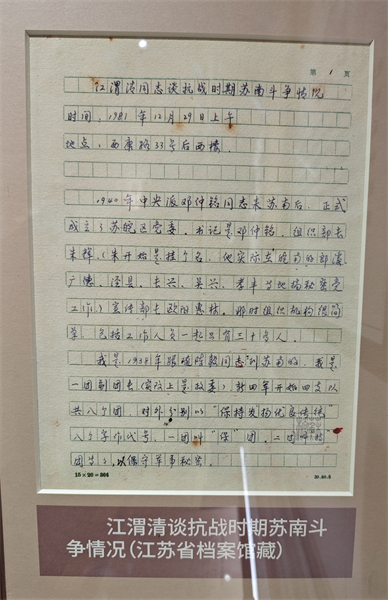 第 1 页
江渭清同志谈抗战时期苏南斗争情况
时间：1981年12月29日上午
地点：西康路33号后西楼.
1940年中央派邓仲铭同志来苏南后，正式
成立了苏皖区党委。书记是邓仲铭，组织部长
朱辉，(朱开始是挂个名，他实际在皖南的郎溪
广德、泾县、长兴、吴兴、孝丰等地搞秘密党
工作)宣传部长欧阳惠林。那时组织机构很简
单，包括工作人员一起只有二十多人。
我是1938年跟随陈毅同志到苏南的，我是
一团副团长(实际上是政委)新四军开始四支队
共八个团，对外分别以"保持发扬优良传统"
八个字作代号。一团叫"保"团，二团叫持
团等等，以保守军事秘密。
15×20=300
江渭清谈抗战时期苏南斗
争情况(江苏省档案馆藏)